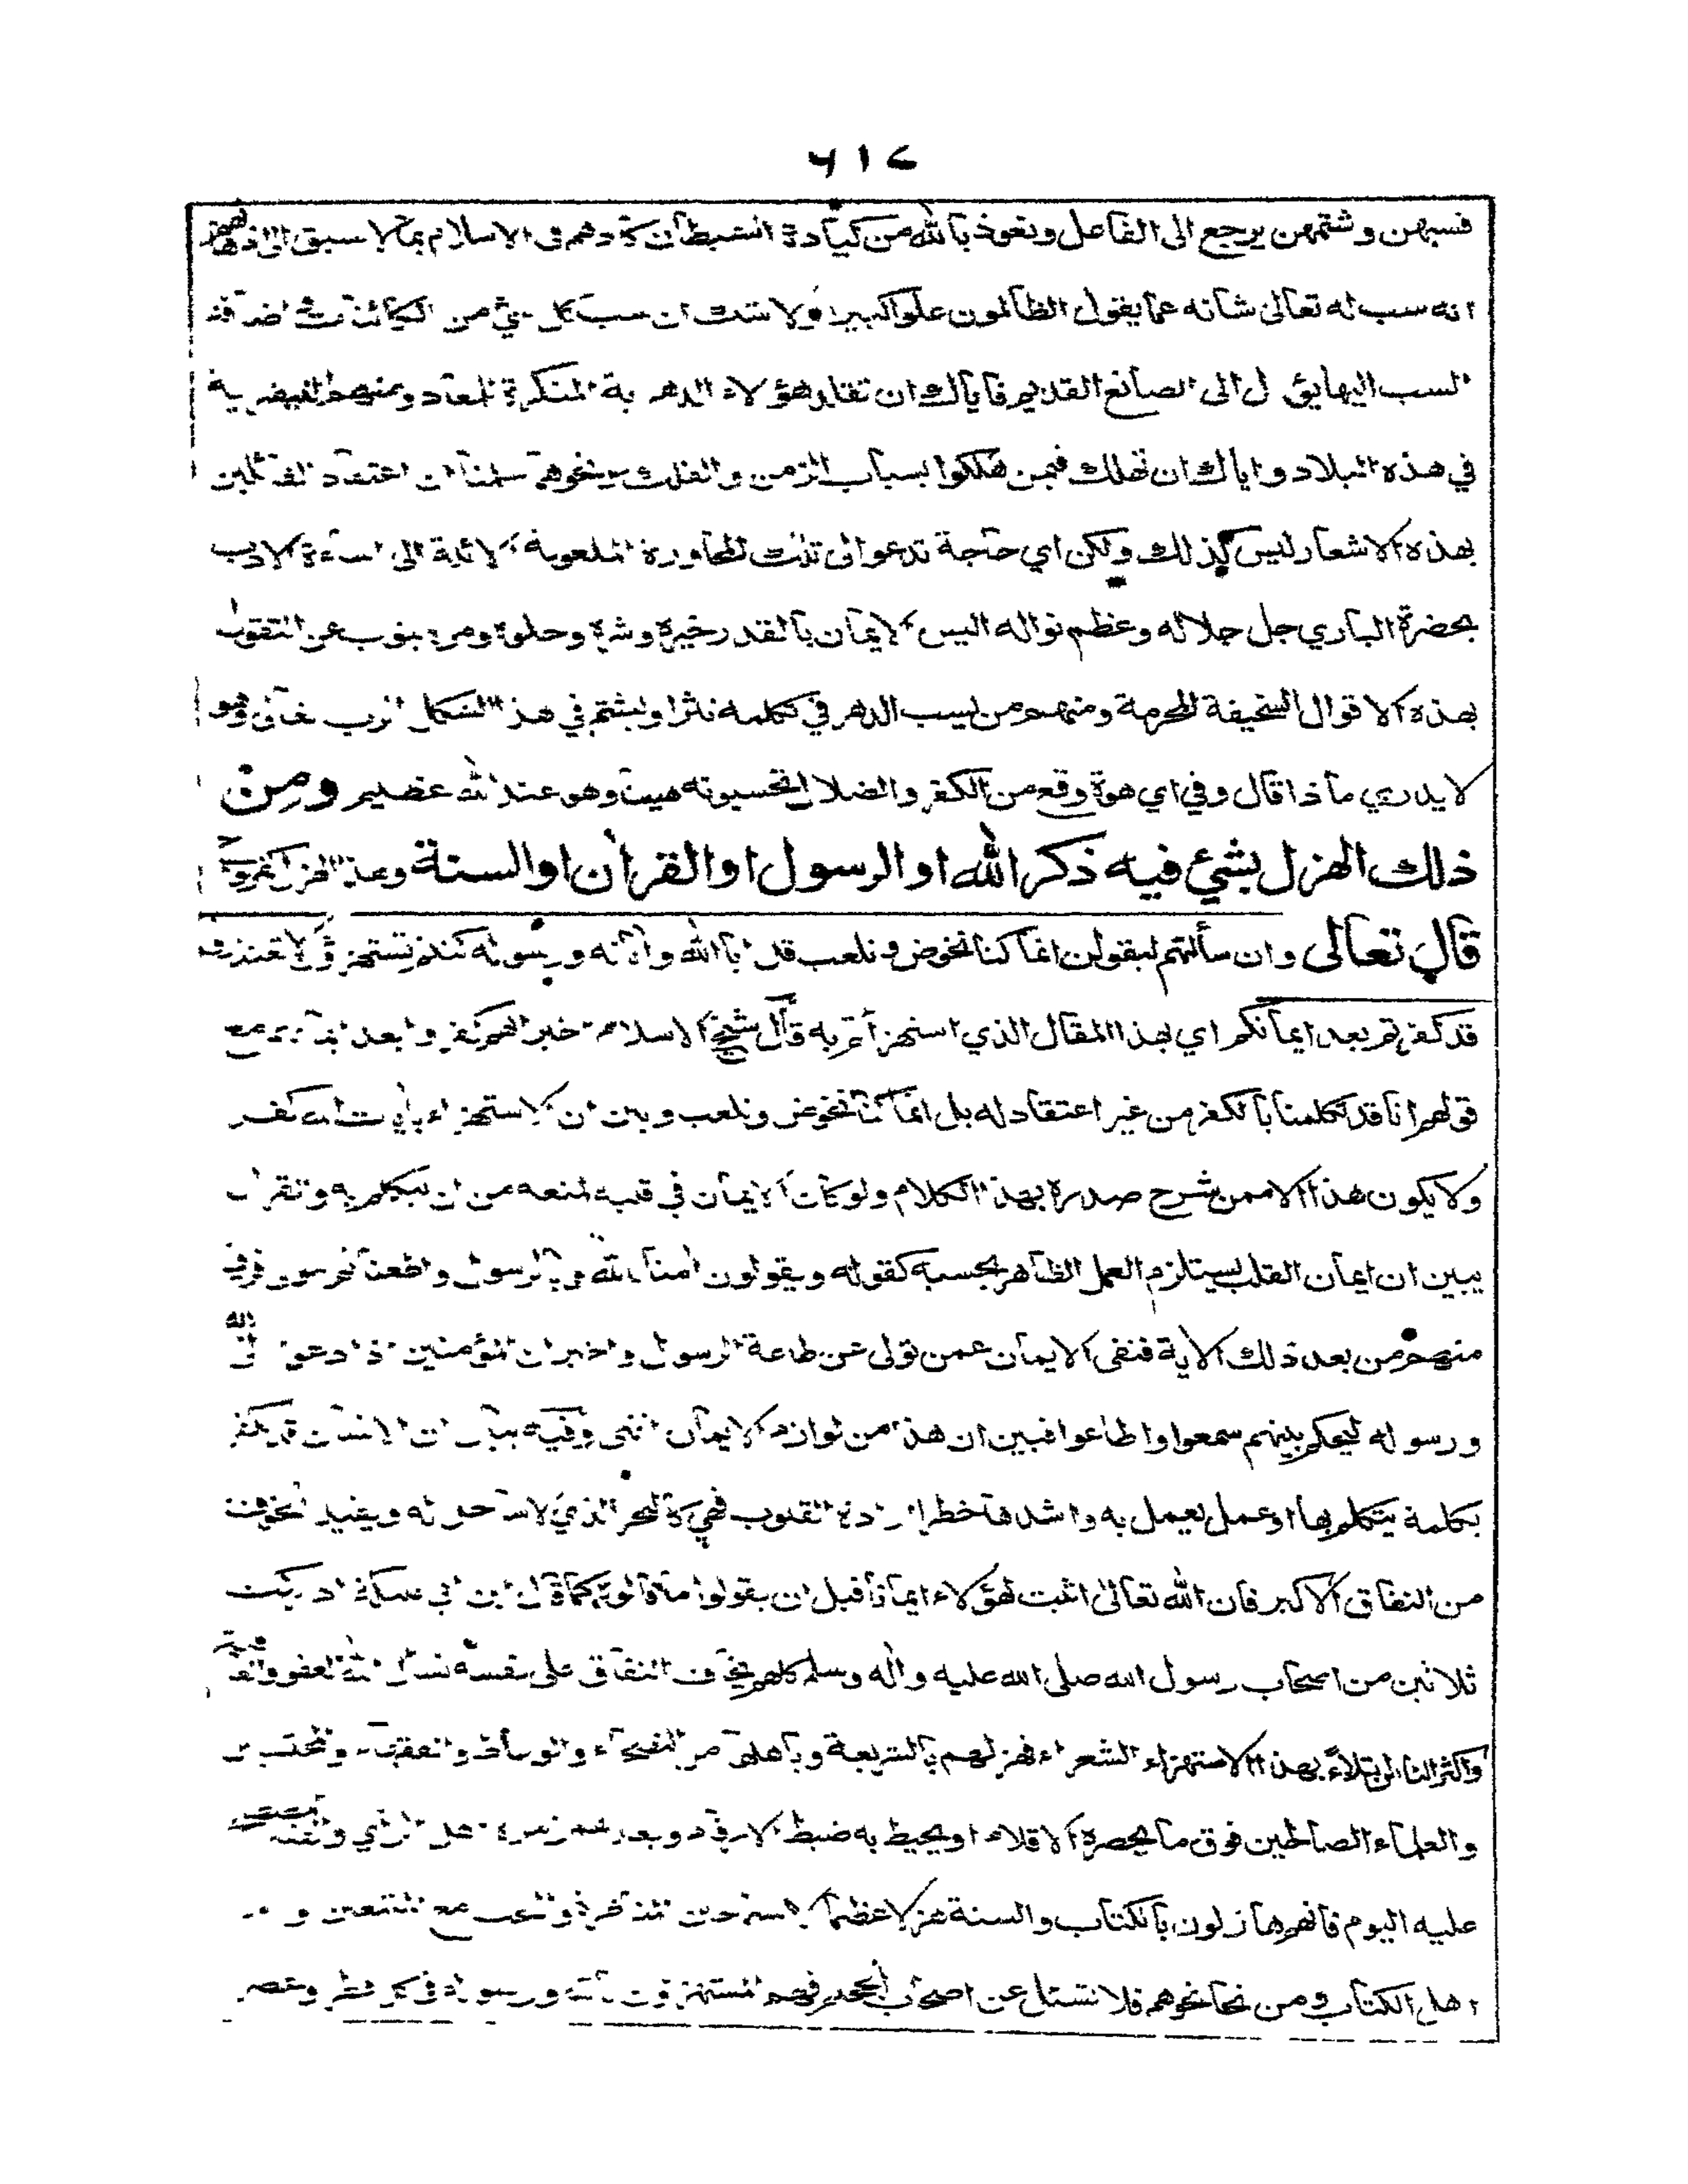 فسبهن وشتمهن يرجع الى الفاعل ونعوذ بالله من كيادة الشيطان كادهم في الاسلام بما لا سبق الى
انه سب له تعالى شانه عما يقول الظالمون علوا كبيرا ولا شك ان سب كل شيء من
السب اليها يؤل الى الصانع القديم فاياك ان تقلد هؤلاء الدهرية المنكرة للمعاد ومنهم
في هذه البلاد واياك ان تهلك فيمن هلكوا بسباب الزمن والفلك ونحوهما سلمنا ان اعتقاد القائلين
بهذه الاشعار ليس كذلك ولكن اي حاجة تدعو الى تلك المحاورة الملعونة الى اساءة الادب
بحضرة الباري جل جلاله وعظم نواله اليس الايمان بالقدر خيره وشره وحلوه ومره ينوب عن التقول
بهذه الاقوال السخيفة المحرمة ومنهم من يسب الدهر في تكلمه نثرا ويشتم في هذا الشكل الرب تعالى وهو
لا يدري ماذا قال وفي اي هوة وقع من الكفر والضلال تحسبونه هينا وهو عند الله عظيم ومن
ذلك الهزل بشيء فيه ذكر الله او الرسول او القرآن او السنة وهذا الهزل كفر
قال تعالى وان سألتهم ليقولن انما كنا نخوض ونلعب قل ابالله وآياته ورسوله كنتم تستهزؤن لا تعتذروا
قد كفرتم بعد ايمانكم اي بهذا المقال الذي استهزأتم به قال شيخ الاسلام اخبر انهم كفروا بعد ايمانهم مع
قولهم انا قد تكلمنا بالكفر من غير اعتقاد له بل انما كنا نخوض ونلعب وبين ان الاستهزاء بآيات الله كفر
ولا يكون هذا الا ممن شرح صدره بهذا الكلام ولو كان الايمان في قلبه لمنعه من ان يتكلم به والقرآن
يبين ان ايمان القلب يستلزم العمل الظاهر بحسبه كقوله ويقولون آمنا بالله وبالرسول واطعنا ثم يتولى فريق
منهم من بعد ذلك الآية فنفى الايمان عمن تولى عن طاعة الرسول واخبر ان المؤمنين اذا دعوا الى الله
ورسوله ليحكم بينهم سمعوا واطاعوا فبين ان هذا من لوازم الايمان انتهى وفيه بيان ان الانسان قد يكفر
بكلمة يتكلم بها او عمل يعمل به واشدها خطرا ارادة القلوب فهي كالبحر الذي لا ساحل له ويفيد الخوف
من النفاق الاكبر فان الله تعالى اثبت لهؤلاء ايمانا قبل ان يقولوا ما قالوه كما قال ابن ابي مليكة ادركت
ثلاثين من اصحاب رسول الله صلى الله عليه وآله وسلم كلهم يخاف النفاق على نفسه نسأل الله العفو والعافية
واكثر الناس ابتلاء بهذا الاستهزاء الشعراء فهزلهم بالشريعة وباهلها من
والعلماء الصالحين فوق ما يحصره الاقلام او يحيط به ضبط الارقام وبعدهم
عليه اليوم فانهم هازلون بالكتاب والسنة هزلا عظيما
اهل الكتاب ومن نحا نحوهم فلا تسئل عن اصحاب فهم المستهزؤن بالله ورسوله في كل قطر وعصر